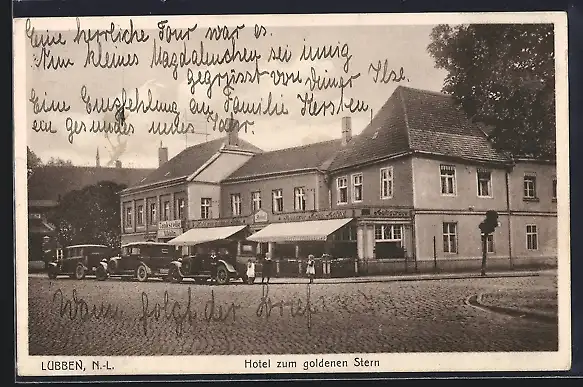 Eine herrliche Tour war es.
Nun kleines Magdalenchen sei innig
gegrüsst von deiner Ilse.
Eine Empfehlung an Familie Kersten
ein gesundes neues Jahr.
Wann folgt der Brief
LÜBBEN, N.-L.
Hotel zum goldenen Stern